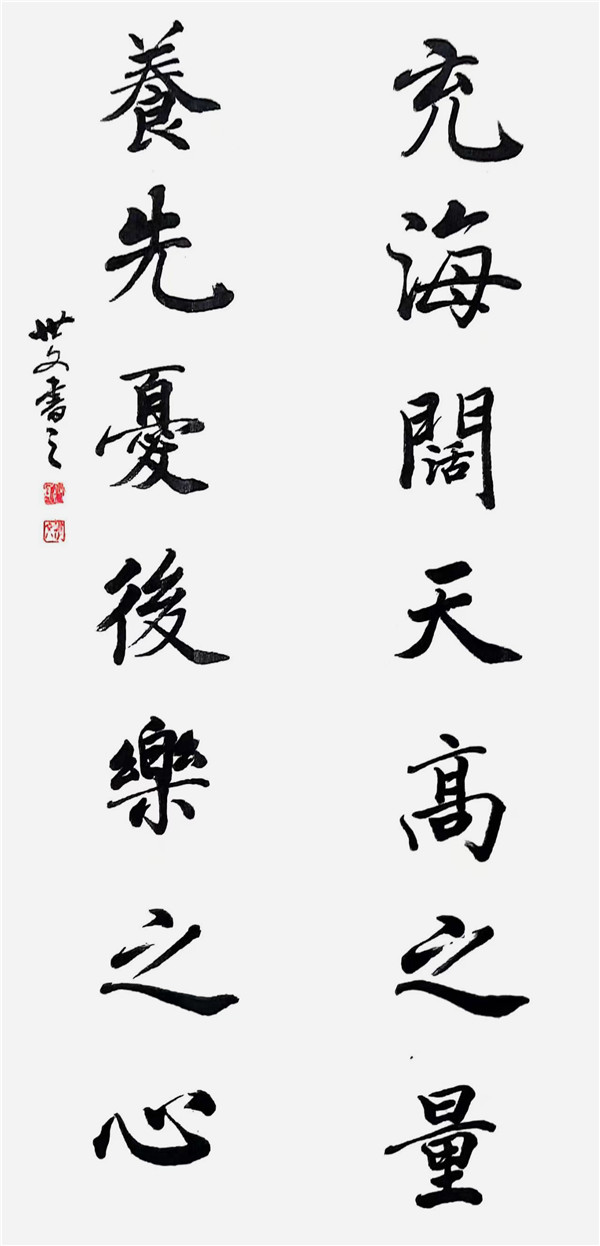 充海闊天高之量
養先憂後樂之心
世文書之